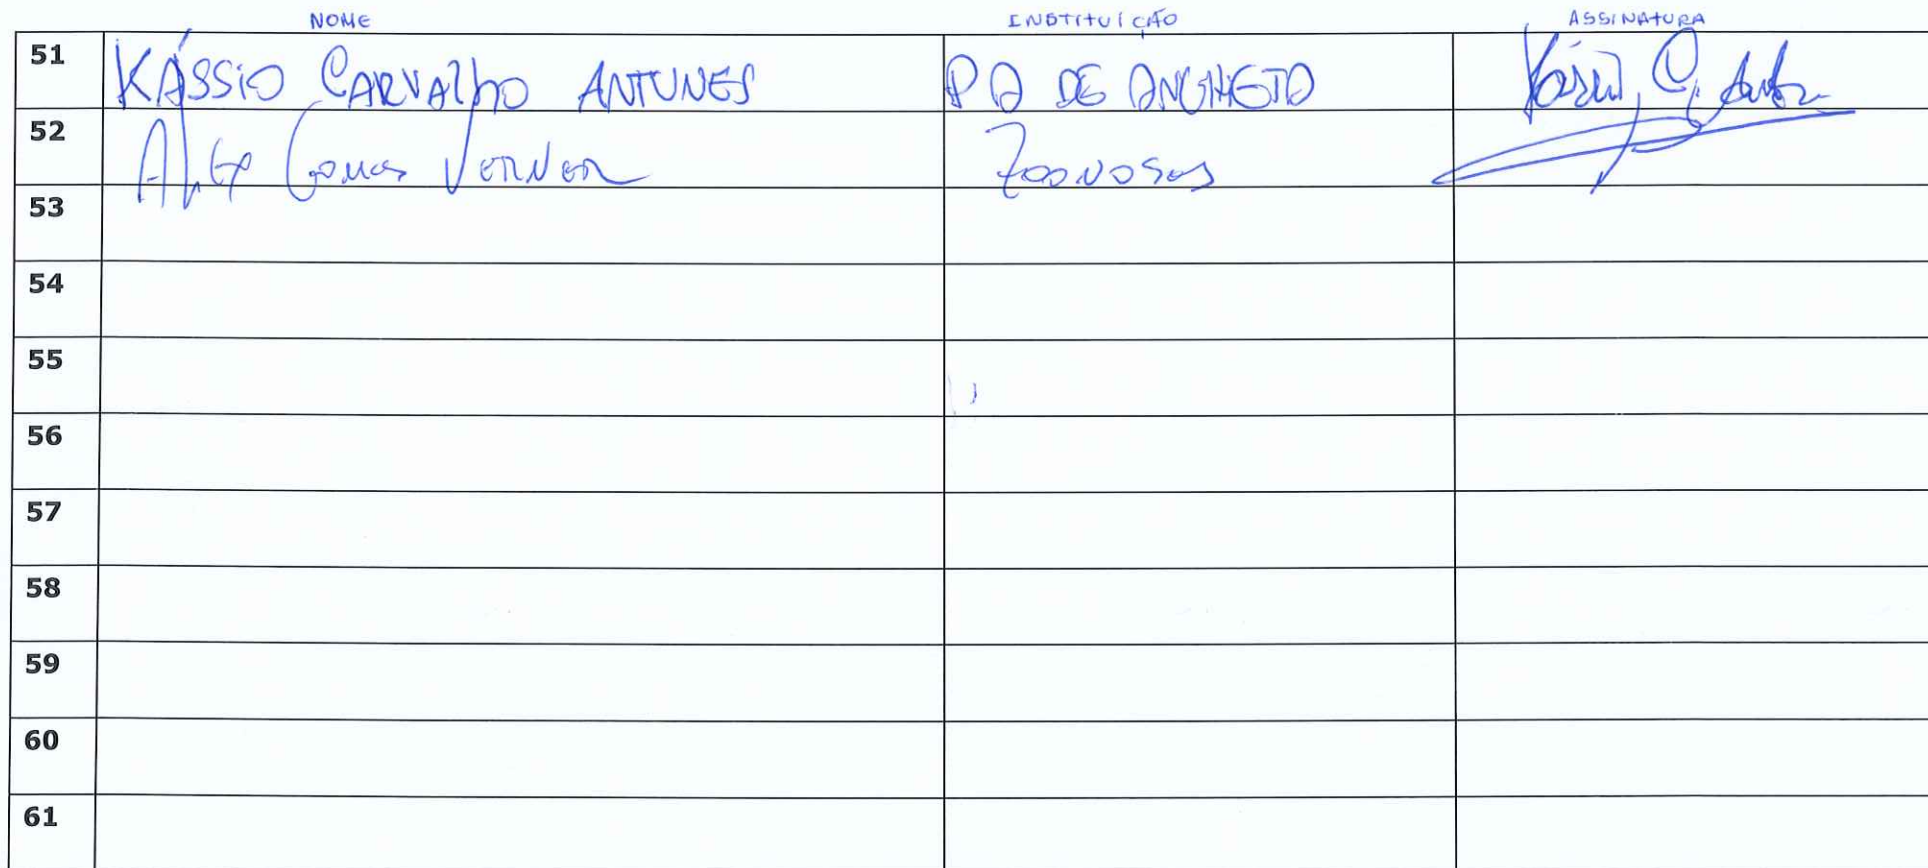 NOME INSTITUIÇÃO ASSINATURA
51 KÁSSIO CARVALHO ANTUNES PA DE ANCHIETA
52 Alex Gomes VERNER Zoonoses
53
54
55
56
57
58
59
60
61